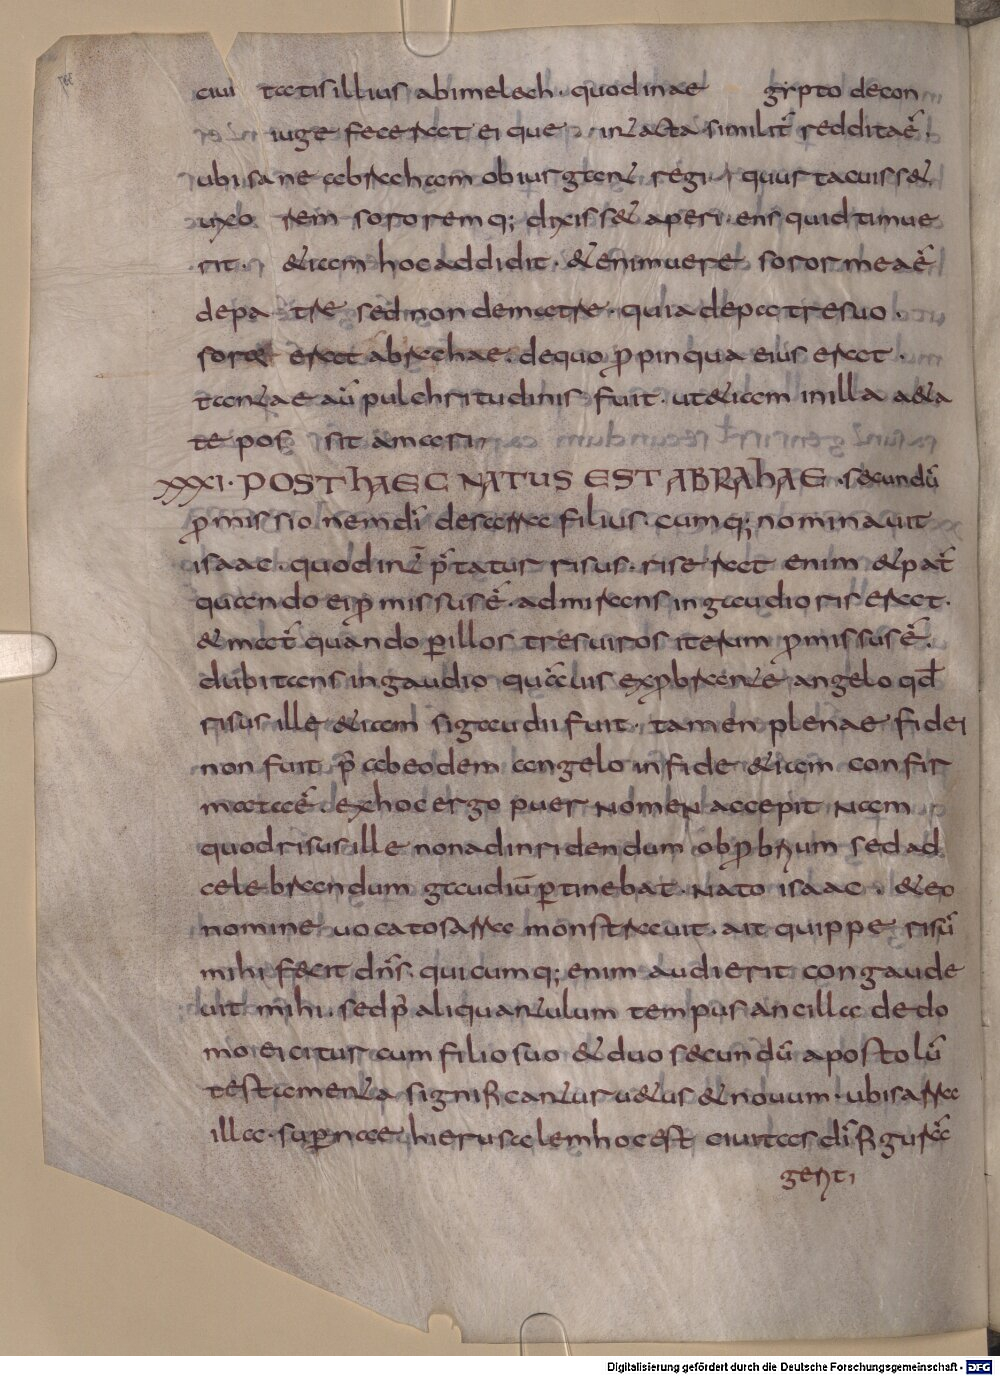 ciui tatis illius abimelech · quod in ae gypto de con
iuge fecerat ei que in2acta similit̄ reddita ē ·
ubi sane abraham obiurgan2i regi · quur tacuisset
uxo rem sororemq; dixisset aperi ens quid timue
rit · etiam hoc addidit · et enim uere soror mea ē
de pa tre sed non de matre · quia de patre suo
soror erat abrahae · de quo ꝓpinqua eius erat ·
tantae aū pulchritudinis fuit · ut etiam in illa aeta
te pos sit amari
XXXI · POST HAEC NATUS EST ABRAHAE · secundū
ꝓmissionem dī de sarra filius · cumq; nominauit
isaac · quod int̄p̄tatur risus · riserat enim et pat̄
quando ei ꝓmissus ē · admirans in gaudio riserat ·
et mat̄ quando ꝑ illos tres uiros iterum ꝓmissus ē ·
dubitans in gaudio quāuis exprobrante angelo qđ
risus ille etiam si gaudii fuit · tamen plenae fidei
non fuit p̄ ab eodem angelo in fide etiam confir
mata ē · ex hoc ergo puer nomen accepit nam
quod risus ille non ad inridendum obꝓbrium sed ad
celebrandum gaudiū ꝑtinebat · nato isaac · et eo
nomine uocato sarra monstrauit · ait quippe risū
mihi fecit dn̄s · quicumq; enim audierit congaude
uit mihi · sed p̄ aliquantulum tempus ancilla de do
mo eicitur cum filio suo et duo secundū apostolū
testamenta significantur uetus et nouum · ubi sarra
illa · suꝑnae hierusalem hoc est ciuitas dī figurā
gerit ·
Digitalisierung gefördert durch die Deutsche Forschungsgemeinschaft - DFG